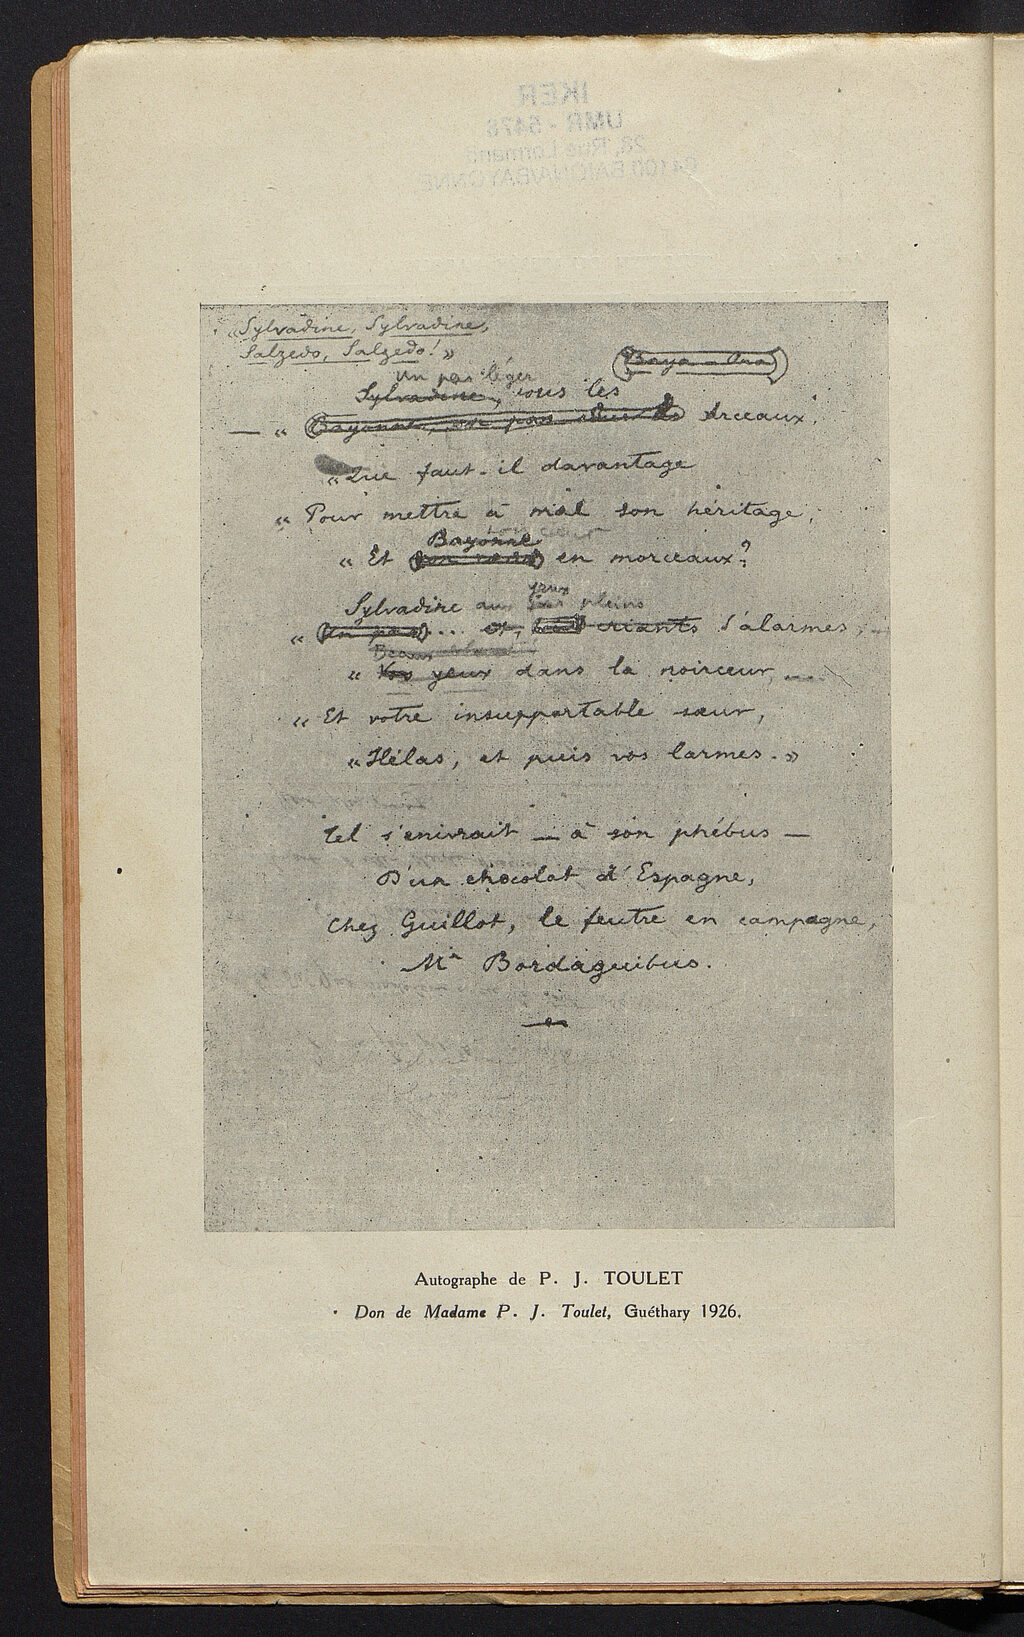 IKER
UMR - 5478
28, Rue Lormand
64100 BAIONA/BAYONNE
« Sylvadine, Sylvadine,
Salzedo, Salzedo! »
Baya - Ona
Un pas léger
Sylvadine, sous les
— « Bayonne, un pas sous les arceaux,
« Que faut-il davantage
« Pour mettre à mal son héritage,
ton cœur
Bayonne
« Et en morceaux?
yeux
Sylvadine aux pleins
« Un pas ... et, criants d'alarmes,
Beaux
« Vos yeux dans la noirceur,
« Et votre insupportable sœur,
« Hélas, et puis vos larmes. »
Tel s'enivrait — à son phébus —
D'un chocolat d'Espagne,
Chez Guillot, le feutre en campagne,
Mr Bordaguibus.
Autographe de P. J. TOULET
Don de Madame P. J. Toulet, Guéthary 1926.